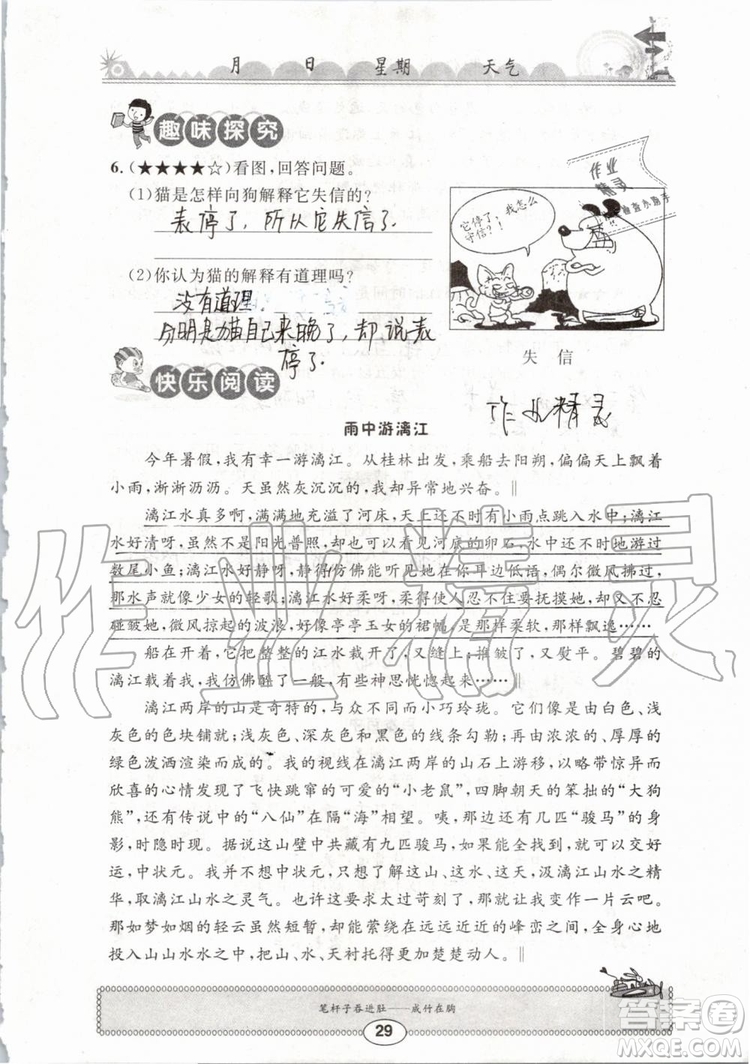 月 日 星期 天气
趣味探究
6.(★★★★☆)看图,回答问题。
(1)猫是怎样向狗解释它失信的?
表停了,所以它失信了.
(2)你认为猫的解释有道理吗?
没有道理.
分明是猫自己来晚了,却说表
停了.
它停了;我怎么
守信!
作业
精灵
失 信
快乐阅读
作业精灵
雨中游漓江
今年暑假,我有幸一游漓江。从桂林出发,乘船去阳朔,偏偏天上飘着
小雨,淅淅沥沥。天虽然灰沉沉的,我却异常地兴奋。‖
漓江水真多啊,满满地充溢了河床,天上还不时有小雨点跳入水中;漓江
水好清呀,虽然不是阳光普照,却也可以看见河底的卵石,水中还不时地游过
数尾小鱼;漓江水好静呀,静得仿佛能听见她在岸边低语,偶尔微风拂过,
那水声就像少女的轻歌;漓江水好柔呀,柔得使人忍不住要抚摸她,又不忍
碰皱她,微风掠起的波浪,好像亭亭玉女的裙幔,是那样柔软,那样飘逸……
船在开着,它把整整的江水裁开了;推皱了,又熨平。碧碧的
漓江载着我,我仿佛醉了一般,有一种神思恍惚的感觉……‖
漓江两岸的山是奇特的,与众不同而小巧玲珑。它们像是由白色、浅
灰色的色块铺就;浅灰色、深灰色和黑色的线条勾勒;再由浓浓的、厚厚的
绿色泼洒渲染而成的。我的视线在漓江两岸的山石上游移,以略带新奇而
欣喜的心情发现了飞快跳窜的可爱的“小老鼠”,四脚朝天的笨拙的“大狗
熊”,还有传说中的“八仙”在隔“海”相望。咦,那里有几匹“骏马”的身
影,时隐时现。据说这山壁中共有九匹骏马,如果能全部找到,可以交好
运,中状元。我并不想中状元,但我爱上了这山、这水、这天,汲漓江山水之精
华,取漓江山水之灵气。我的要求也许太过苛刻了,我便变作一片云吧。
那如梦如烟的轻云虽然短暂,却能萦绕在远远近近的峰峦之间,全身心地
投入山山水水之中,把山、水、天衬托得更加楚楚动人。‖
笔杆子吞进肚——成竹在胸
29
作业精灵
答案圈
MXQE.COM